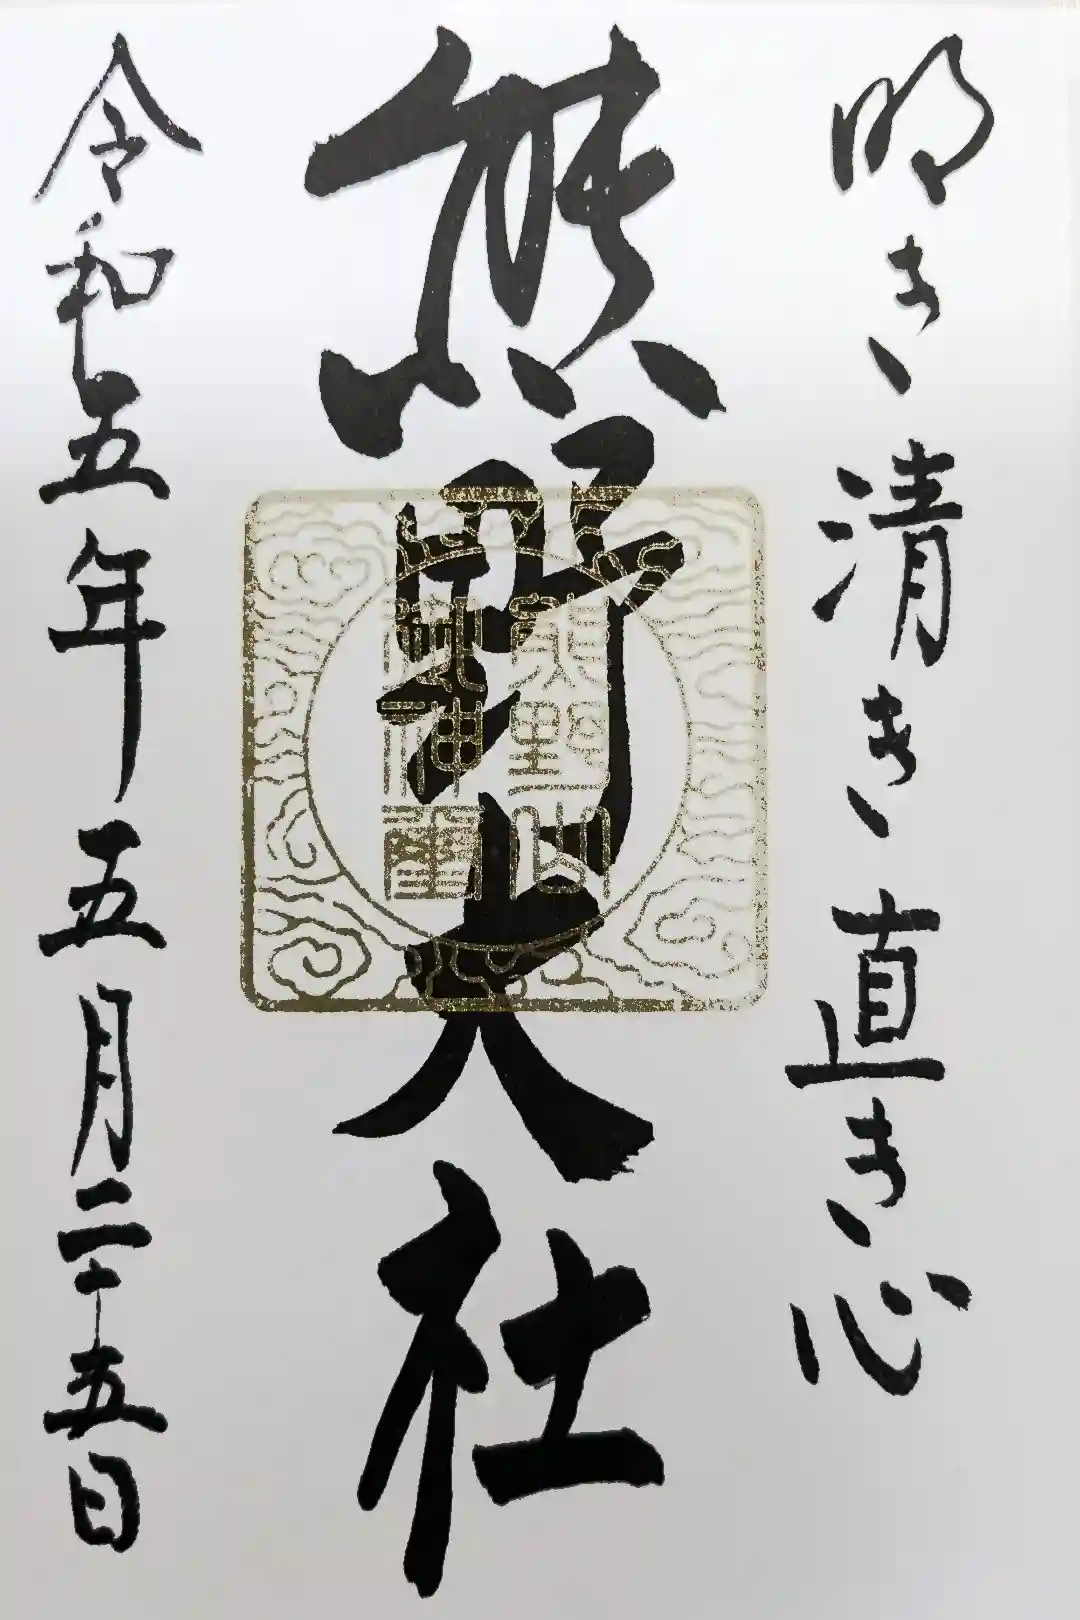 明き清き直き心
熊野大社
熊野山
神
令和五年五月二十五日